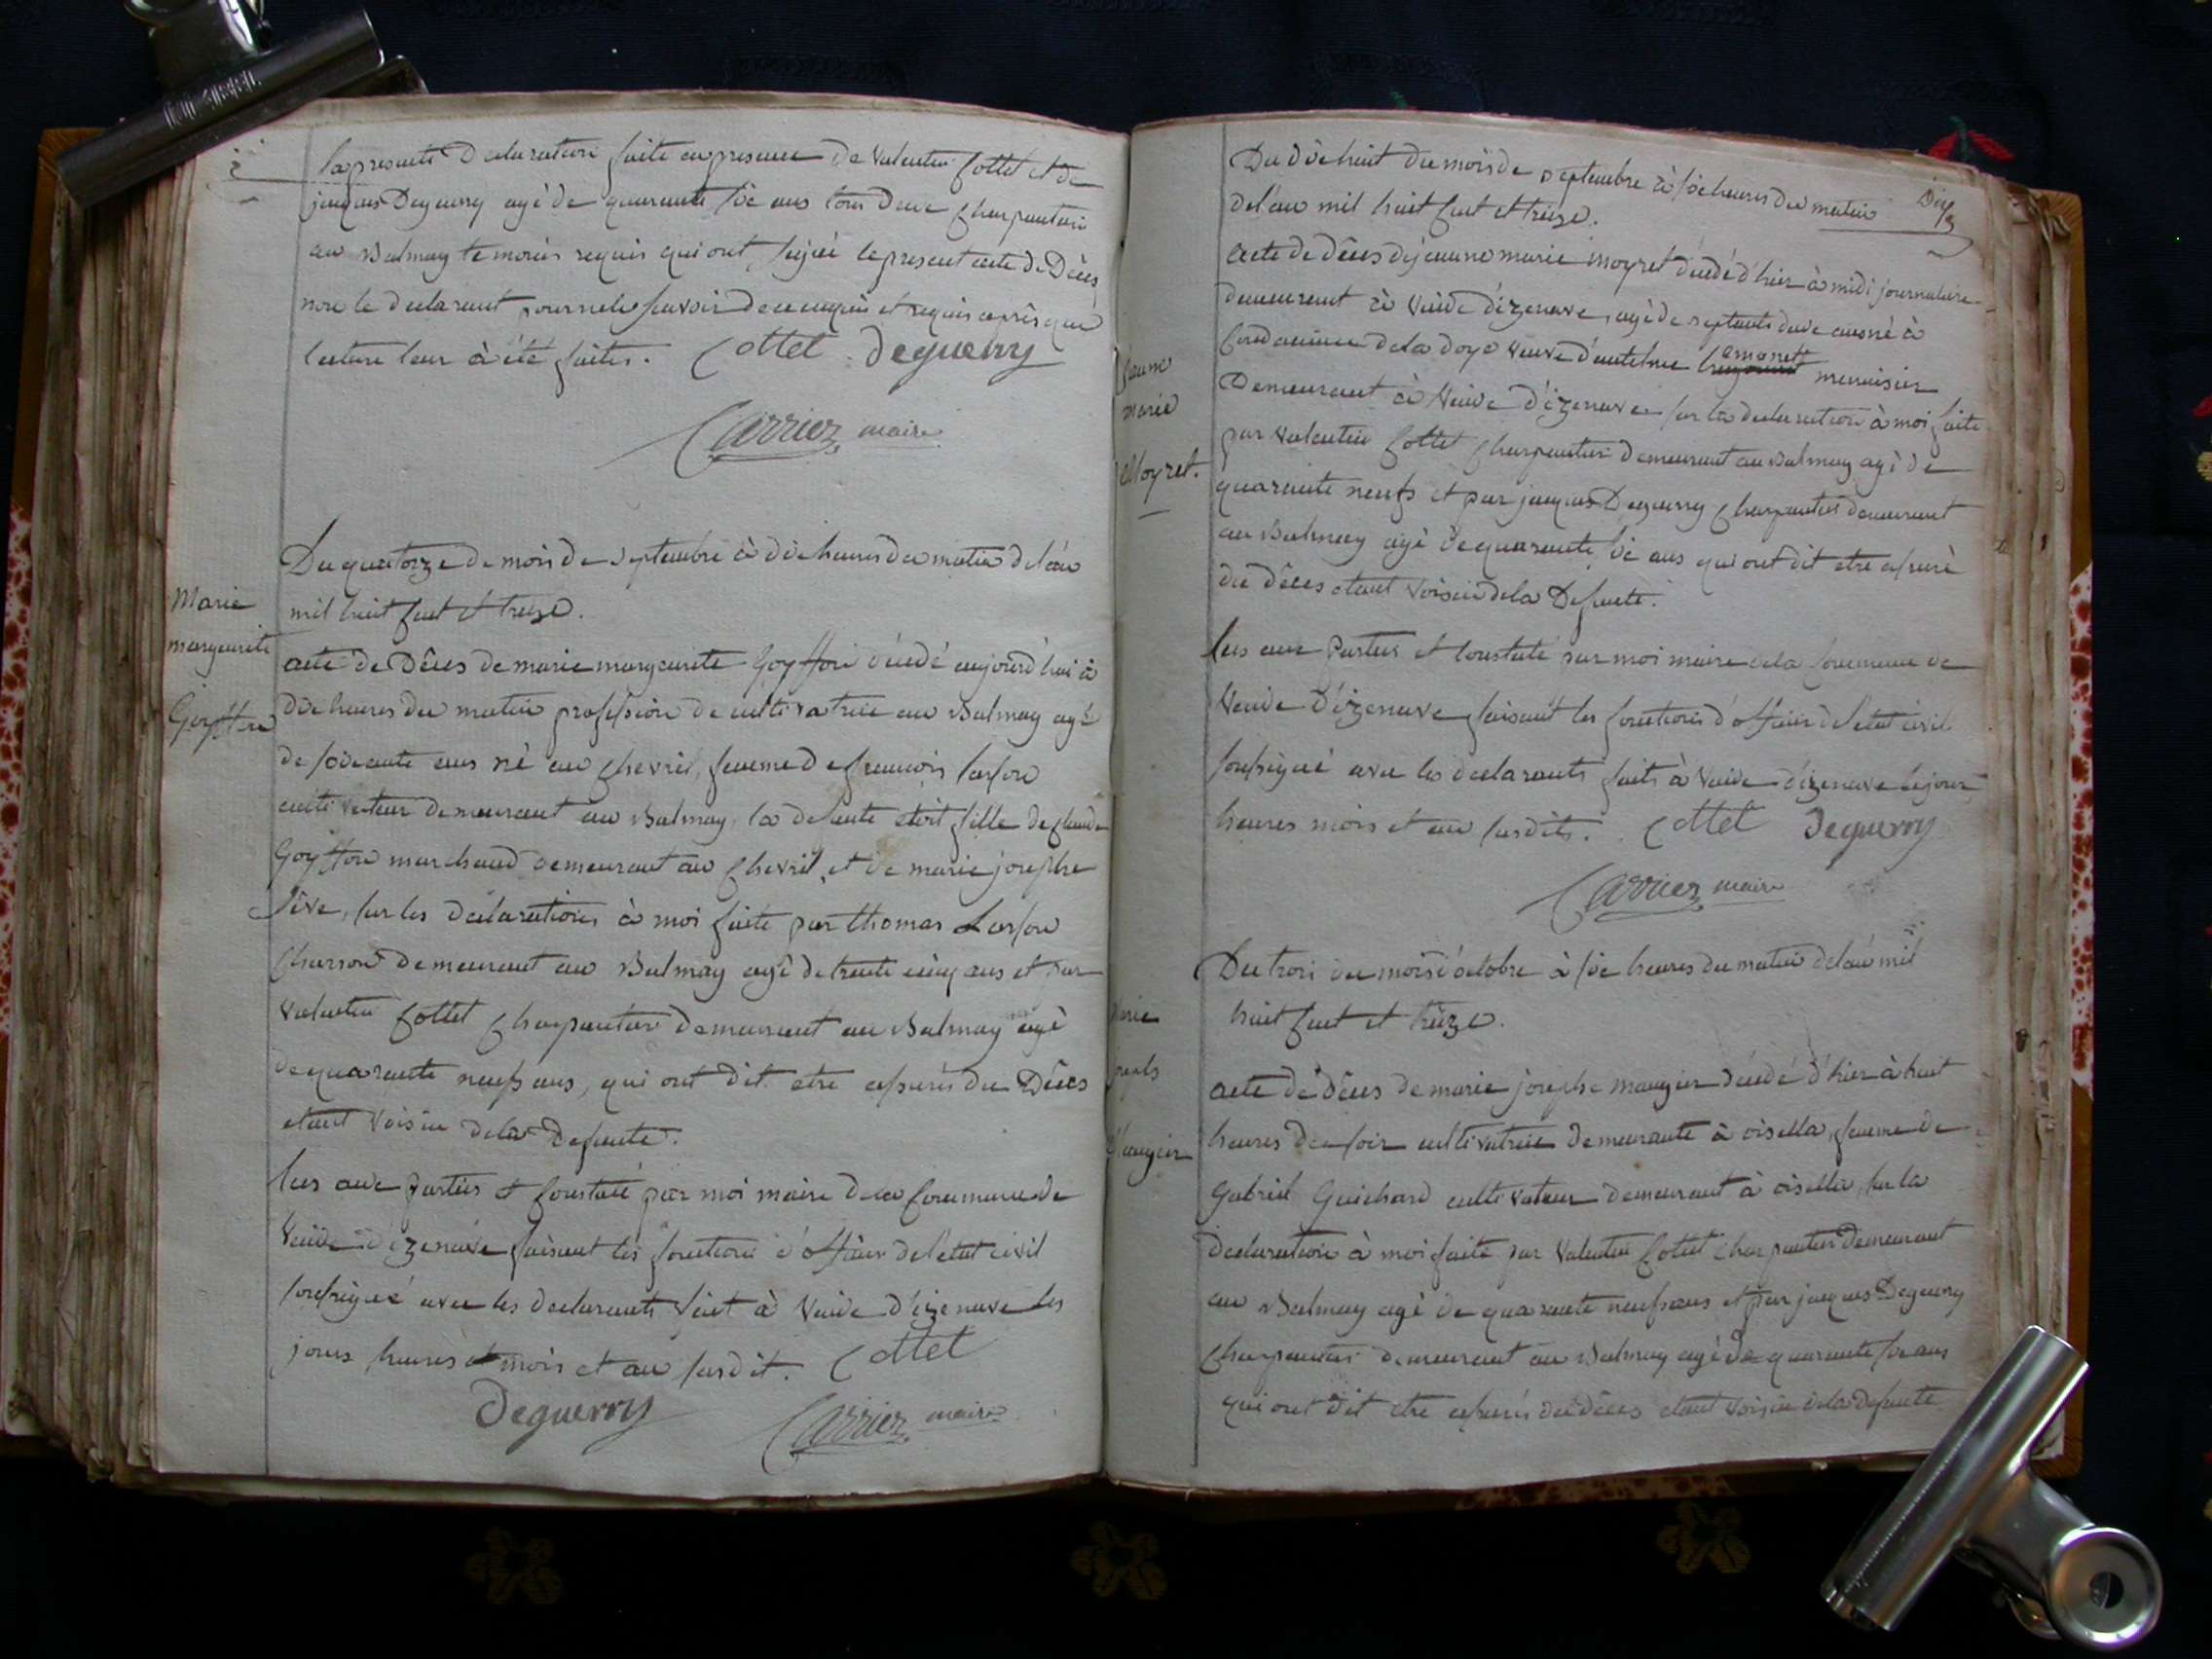 la presente Declaration faite en presence de Valentin Cottet et de
jacques Deguerry agé de quarante six ans tous deux Charpentier
au Balmay temoins requis qui ont signé le present acte de Déces,
non le declarant pour ne le savoir de ce enquis et requis après que
lecture leur à été faites. Cottet Deguerry
Carrier maire
Marie
marguerite
Goyffon
Du quatorze de mois de Septembre à dix heures du matin de l'an
mil huit cent et treize.
acte de Déces de marie marguerite Goyffon décédé aujourd'hui à
dix heures du matin profession de cultivatrice au Balmay agé
de soixante ans né au Chevril, femme de francois
cultivateur demeurant au Balmay, la defunte étoit fille de Claude
Goyffon marchand demeurant au Chevril, et de marie josephe
Sêve, sur les déclarations à moi faite par thomas
Charron demeurant au Balmay agé de trente cinq ans et par
Valentin Cottet Charpentier demeurant au Balmay agé
de quarante neuf ans, qui ont dit etre assurés du Déces
etant voisin de la defunte.
lus aux parties et constaté par moi maire de la commune de
Vieude d'izenave faisant les fonctions d'officier de l'état civil
soussigné avec les declarants fait à Vieude d'izenave les
jours heures et mois et an susdit. Cottet
Deguerry Carrier maire
Du dix huit du mois de Septembre à six heures du matin
de l'an mil huit cent et treize.
jeanne
marie
Moyret.
acte de déces de jeanne marie moyret décédé d'hier à midi journaliere
demeurant à Vieude d'izenave, agé de septante deux ans né à
Condamine de la Doye veuve d'antelme emonet menuisier
Demeurant à Vieude d'izenave sur la declaration à moi faite
par Valentin Cottet Charpentier demeurant au Balmay agé de
quarante neufs et par jacques Deguerry Charpentier demeurant
au Balmay agé de quarante six ans qui ont dit etre assuré
du déces etant voisin de la Defunte.
lus aux parties et constaté par moi maire de la commune de
Vieude d'izenave faisant les fonctions d'officier de l'état civil
soussigné avec les declarants faits à Vieude d'izenave le jour,
heures mois et an susdits. Cottet Deguerry
Carrier maire
Du trois du mois d'octobre à six heures du matin de l'an mil
huit cent et treize.
acte de déces de marie josephe maugier décédé d'hier à huit
heures du soir cultivatrice demeurante à oisella, femme de
Gabriel Guichard cultivateur demeurant à oisella, sur la
declaration à moi faite par Valentin Cottet charpentier demeurant
au Balmay agé de quarante neuf ans et par jacques Deguerry
Charpentier demeurant au Balmay agé de quarante six ans
qui ont dit etre assurés du déces etant voisin de la defunte